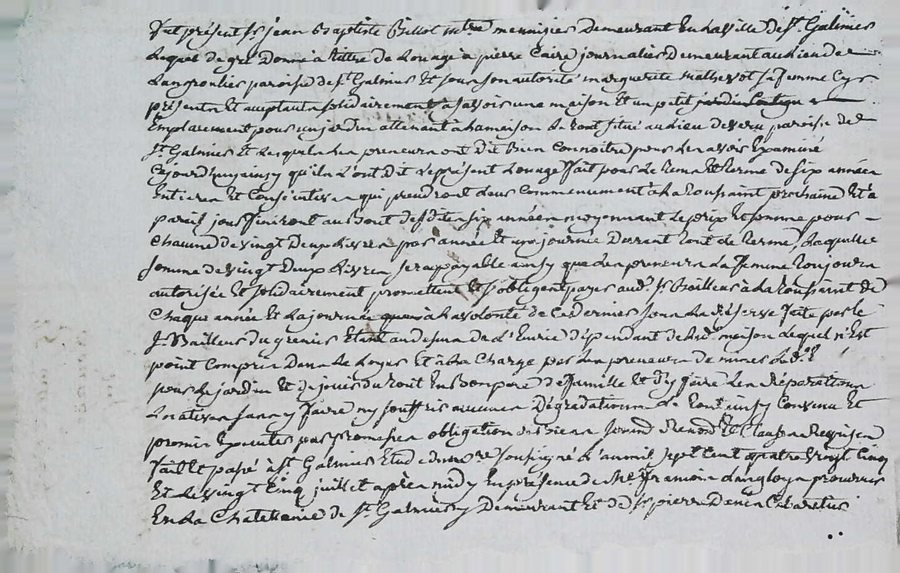 fut présent Sr jean Baptiste Billot mtre menuisier demeurant en la ville de St. Galmier
lequel de gré donne à tittre de louage a pierre Caire journalier demeurant au lieu de
paroisse de St. Galmier et sous son autorité marguerite mathevot sa femme cy
présente et acceptant solidairement a savoir une maison et un petit jardin
Emplacement pour un jardin attenant à la maison le tout situé au lieu de paroisse de
St. Galmier et lesquels les preneurs ont dit bien connoitre pour les avoir Examiné
Cejourdhuy ainsy qu'ils l'ont dit le present louage fait pour le tems et terme de six années
Entieres et Consécutives qui prendront leur Commencement à la toussaint prochaine et à
pareil jour finiront au bout desdites six années moyennant le prix et somme pour
Chacune de vingt deux livres par année et une journée durant tout le terme, laquelle
somme de vingt deux livres sera payable ainsy que les preneurs la femme toujours
autorisée et solidairement promettent et s'obligent payer aud. Sr Bailleur à la toussaint de
Chaque année et la journée quand à la volonté de ce dernier sous la réserve faite par le
Sr Bailleur du grenier Etant au dessus de l'Ecurie dépendant de lad. maison lequel n'est
point Compris dans le loyer et à la Charge par les preneurs de
pour le jardin et de jouir du tout en bon pere de famille et d'y faire les réparations
locatives sans y faire ny souffrir aucunes dégradations le tout ainsy convenu et
promis Executer par promesses obligation des biens soumis. renon. et Clauses requises
fait et passé à St. Galmier Etude du nore soussigné l'an mil sept cent quatre vingt cinq
Et le vingt cinq juillet après midy En présence de Me françois danglois procureur
En la Chatellenie de St. Galmier y demeurant et de Sr pierre